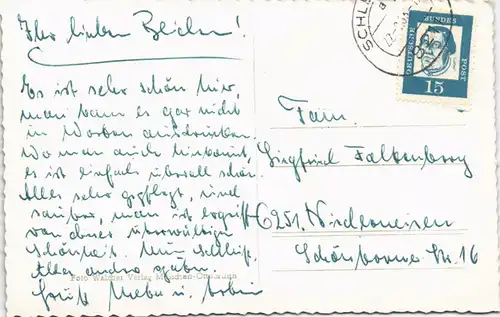 Ihr lieben Beiden!
Es ist sehr schön hier,
man kann es gar nicht
in Worten ausdrücken.
Wo man auch hinkommt,
es ist einfach überall schön.
Alles sehr gepflegt, und
sauber, man ist ergriffen
von dieser
Schönheit.
Alles andre später.
Gruß
Foto Walcher Verlag München-Ottobrunn
SCHL
DEUTSCHE BUNDESPOST
15
Fam.
Siegfried Falkenberg
6251 Niederneisen
Schönborner Str. 16